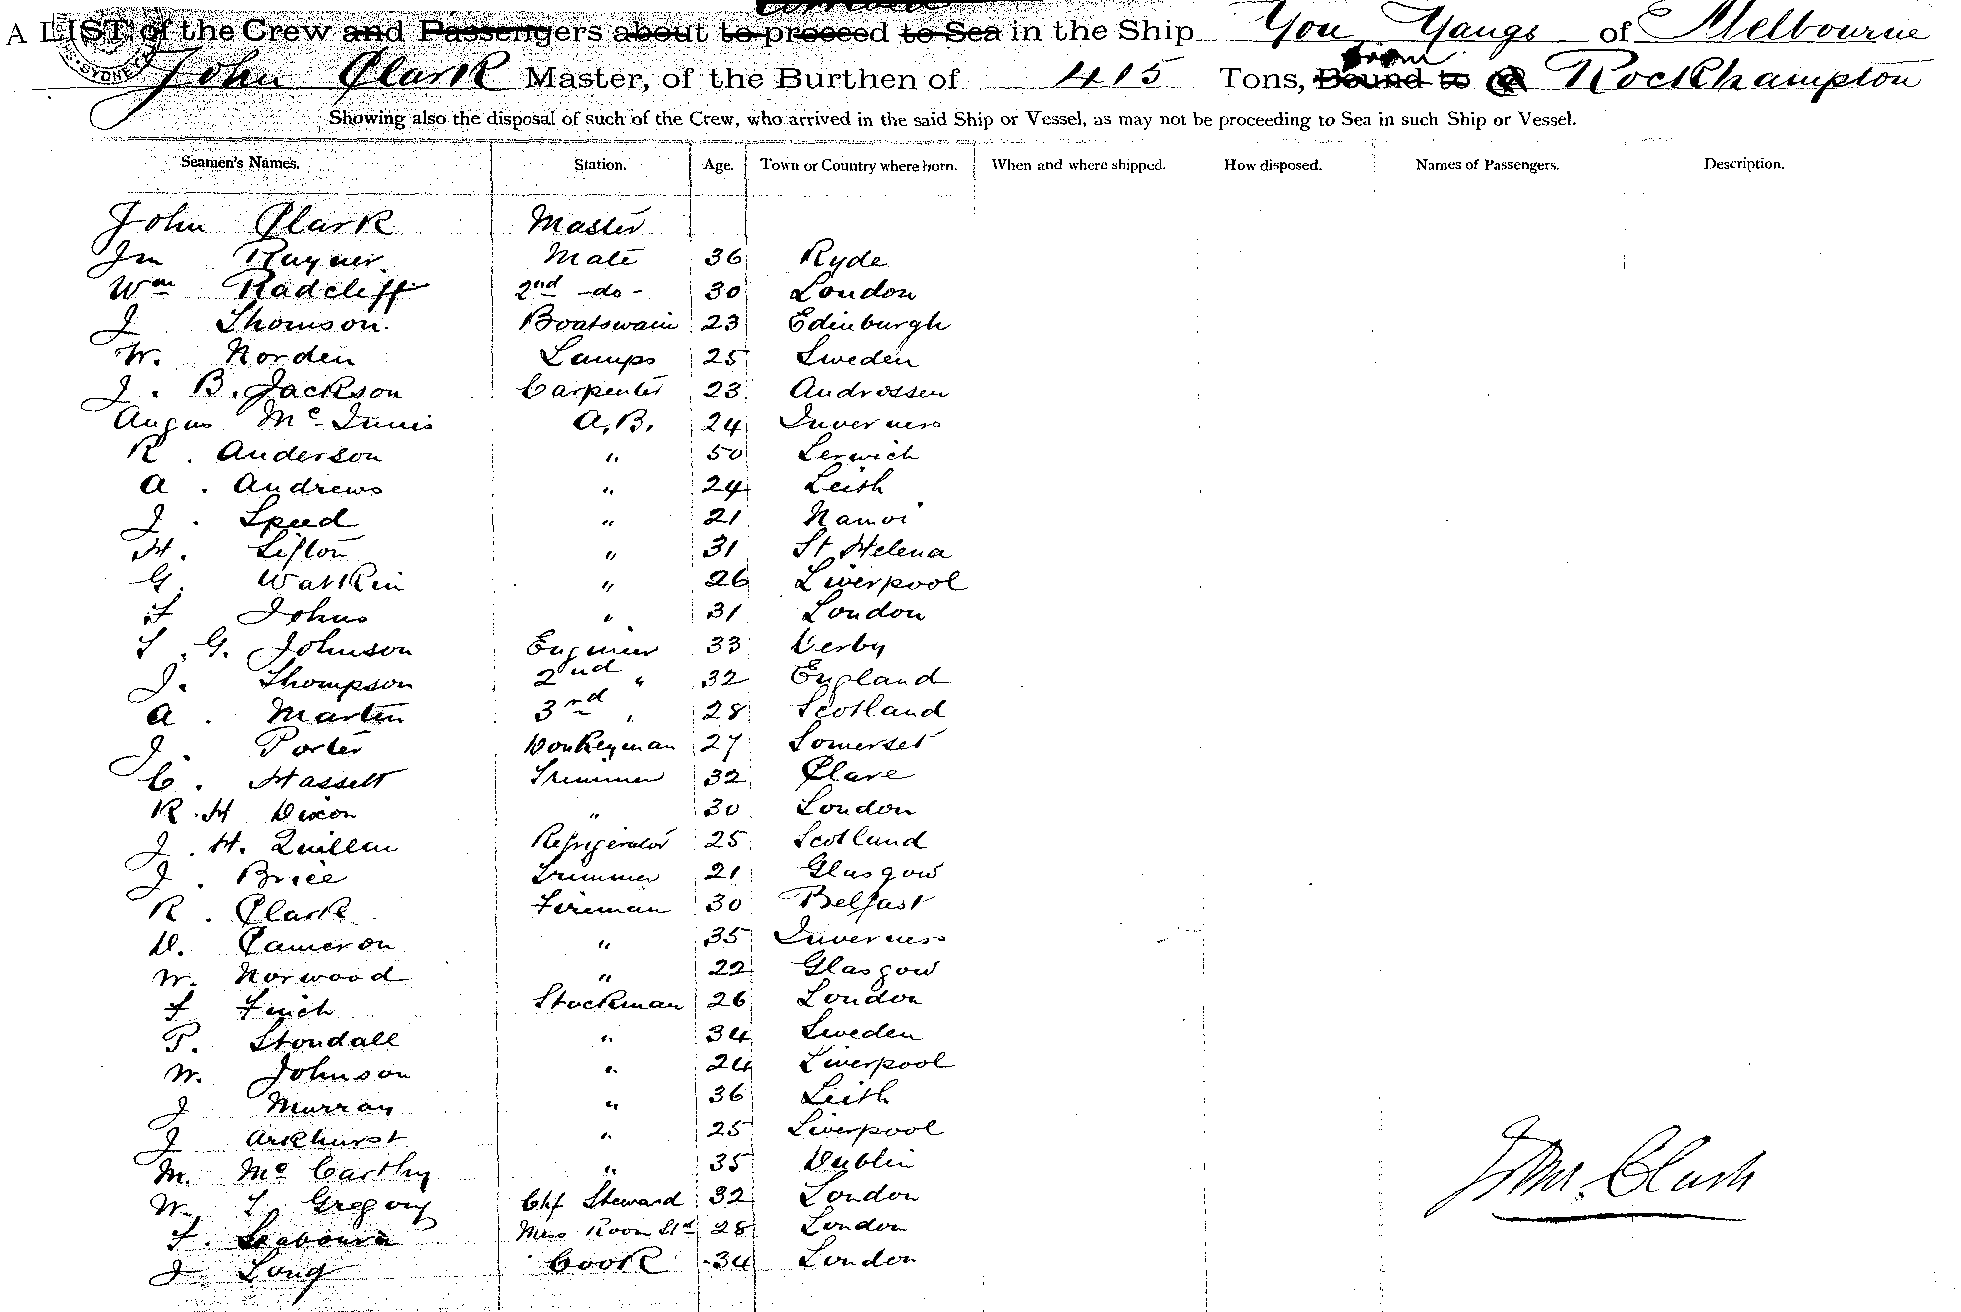 A LIST of the Crew and Passengers about to proceed to Sea in the Ship You Yangs of Melbourne
John Clark Master, of the Burthen of 415 Tons, Bound to from Rockhampton
Showing also the disposal of such of the Crew, who arrived in the said Ship or Vessel, as may not be proceeding to Sea in such Ship or Vessel.
Seamen's Names. Station. Age. Town or Country where born. When and where shipped. How disposed. Names of Passengers. Description.
John Clark Master
Jn Rayner Mate 36 Ryde
Wm Radcliff 2nd -do- 30 London
J Thomson Boatswain 23 Edinburgh
W. Norden Lamps 25 Sweden
J. B. Jackson Carpenter 23 Androssen
Angus Mc Innis A.B. 24 Inverness
R. Anderson " 50 Lerwich
A. Andrews " 24 Leith
J. Speed " 21 Namoi
H. Lifton " 31 St Helena
G. Watkin " 26 Liverpool
F Johns " 31 London
T. G. Johnson Engineer 33 Derby
J. Thompson 2nd " 32 England
A. Martin 3rd " 28 Scotland
J. Porter Donkeyman 27 Somerset
C. Hassett Trimmer 32 Clare
R. H Dixon " 30 London
J. H. Quillen Refrigerator 25 Scotland
J. Brice Trimmer 21 Glasgow
R. Clark Fireman 30 Belfast
D. Cameron " 35 Inverness
W. Norwood " 22 Glasgow
F Finch Stockman 26 London
P. Stondall " 34 Sweden
W. Johnson " 24 Liverpool
J Murray " 36 Leith
J Arkhurst " 25 Liverpool
M. Mc Carthy " 35 Dublin
W. T Gregory Chf Steward 32 London
F. Seabourn Mess Room Std 28 London
J Long Cook 34 London
John Clark
SYDNEY